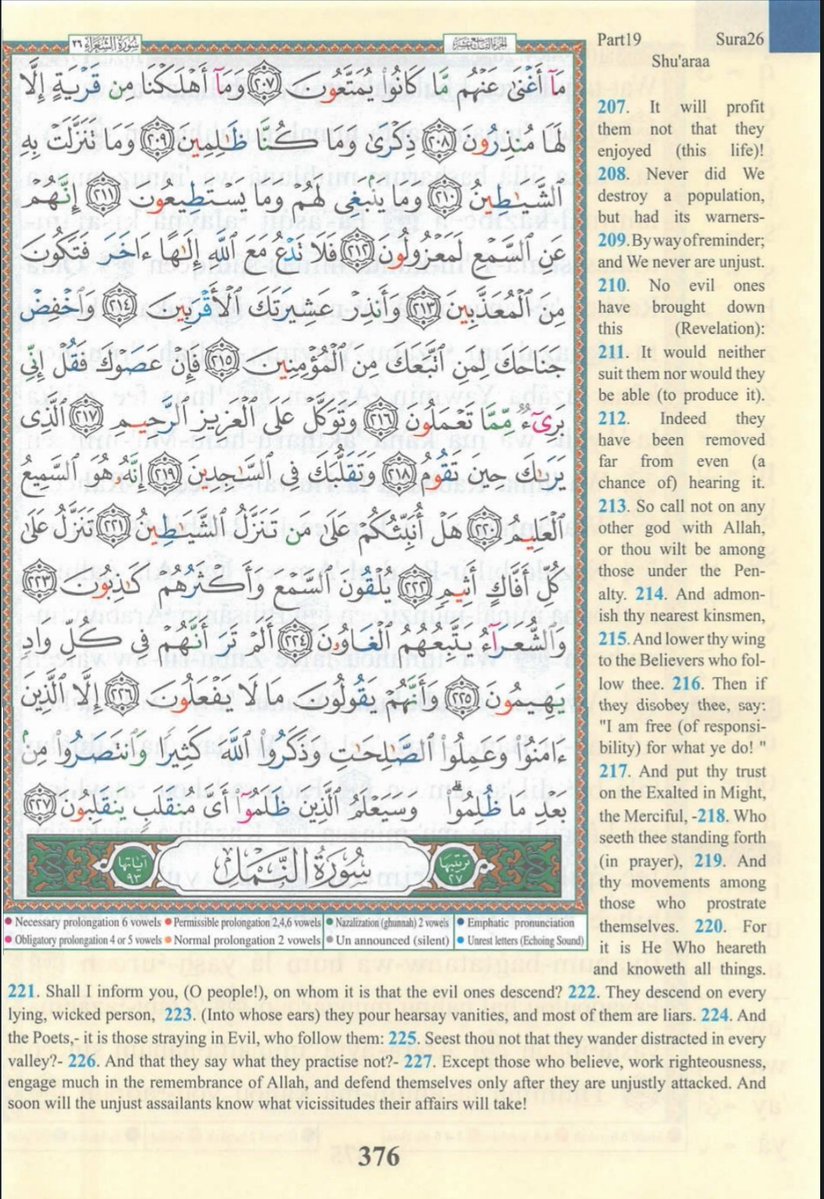 سُورَةُ الشُّعَرَاءِ ٢٦
الجزء التاسع عشر
مَآ أَغْنَىٰ عَنْهُم مَّا كَانُوا۟ يُمَتَّعُونَ ٢٠٧ وَمَآ أَهْلَكْنَا مِن قَرْيَةٍ إِلَّا
لَهَا مُنذِرُونَ ٢٠٨ ذِكْرَىٰ وَمَا كُنَّا ظَٰلِمِينَ ٢٠٩ وَمَا تَنَزَّلَتْ بِهِ
الشَّيَٰطِينُ ٢١٠ وَمَا يَنۢبَغِى لَهُمْ وَمَا يَسْتَطِيعُونَ ٢١١ إِنَّهُمْ
عَنِ السَّمْعِ لَمَعْزُولُونَ ٢١٢ فَلَا تَدْعُ مَعَ اللَّهِ إِلَٰهًا ءَاخَرَ فَتَكُونَ
مِنَ الْمُعَذَّبِينَ ٢١٣ وَأَنذِرْ عَشِيرَتَكَ الْأَقْرَبِينَ ٢١٤ وَاخْفِضْ
جَنَاحَكَ لِمَنِ اتَّبَعَكَ مِنَ الْمُؤْمِنِينَ ٢١٥ فَإِنْ عَصَوْكَ فَقُلْ إِنِّى
بَرِىٓءٌ مِّمَّا تَعْمَلُونَ ٢١٦ وَتَوَكَّلْ عَلَى الْعَزِيزِ الرَّحِيمِ ٢١٧ الَّذِى
يَرَىٰكَ حِينَ تَقُومُ ٢١٨ وَتَقَلُّبَكَ فِى السَّٰجِدِينَ ٢١٩ إِنَّهُۥ هُوَ السَّمِيعُ
الْعَلِيمُ ٢٢٠ هَلْ أُنَبِّئُكُمْ عَلَىٰ مَن تَنَزَّلُ الشَّيَٰطِينُ ٢٢١ تَنَزَّلُ عَلَىٰ
كُلِّ أَفَّاكٍ أَثِيمٍ ٢٢٢ يُلْقُونَ السَّمْعَ وَأَكْثَرُهُمْ كَٰذِبُونَ ٢٢٣
وَالشُّعَرَآءُ يَتَّبِعُهُمُ الْغَاوُۥنَ ٢٢٤ أَلَمْ تَرَ أَنَّهُمْ فِى كُلِّ وَادٍ
يَهِيمُونَ ٢٢٥ وَأَنَّهُمْ يَقُولُونَ مَا لَا يَفْعَلُونَ ٢٢٦ إِلَّا الَّذِينَ
ءَامَنُوا۟ وَعَمِلُوا۟ الصَّٰلِحَٰتِ وَذَكَرُوا۟ اللَّهَ كَثِيرًا وَانتَصَرُوا۟ مِنۢ
بَعْدِ مَا ظُلِمُوا۟ ۗ وَسَيَعْلَمُ الَّذِينَ ظَلَمُوٓا۟ أَىَّ مُنقَلَبٍ يَنقَلِبُونَ ٢٢٧
ترتيبها ٢٧ سُورَةُ النَّمْلِ آياتها ٩٣
● Necessary prolongation 6 vowels ● Permissible prolongation 2,4,6 vowels ● Nazalization (ghunnah) 2 vowels ● Emphatic pronunciation
● Obligatory prolongation 4 or 5 vowels ● Normal prolongation 2 vowels ● Un announced (silent) ● Unrest letters (Echoing Sound)
Part19 Sura26
Shu'araa
207. It will profit
them not that they
enjoyed (this life)!
208. Never did We
destroy a population,
but had its warners-
209. By way of reminder;
and We never are unjust.
210. No evil ones
have brought down
this (Revelation):
211. It would neither
suit them nor would they
be able (to produce it).
212. Indeed they
have been removed
far from even (a
chance of) hearing it.
213. So call not on any
other god with Allah,
or thou wilt be among
those under the Pen-
alty. 214. And admon-
ish thy nearest kinsmen,
215. And lower thy wing
to the Believers who fol-
low thee. 216. Then if
they disobey thee, say:
"I am free (of responsi-
bility) for what ye do! "
217. And put thy trust
on the Exalted in Might,
the Merciful, -218. Who
seeth thee standing forth
(in prayer), 219. And
thy movements among
those who prostrate
themselves. 220. For
it is He Who heareth
and knoweth all things.
221. Shall I inform you, (O people!), on whom it is that the evil ones descend? 222. They descend on every
lying, wicked person, 223. (Into whose ears) they pour hearsay vanities, and most of them are liars. 224. And
the Poets,- it is those straying in Evil, who follow them: 225. Seest thou not that they wander distracted in every
valley?- 226. And that they say what they practise not?- 227. Except those who believe, work righteousness,
engage much in the remembrance of Allah, and defend themselves only after they are unjustly attacked. And
soon will the unjust assailants know what vicissitudes their affairs will take!
376